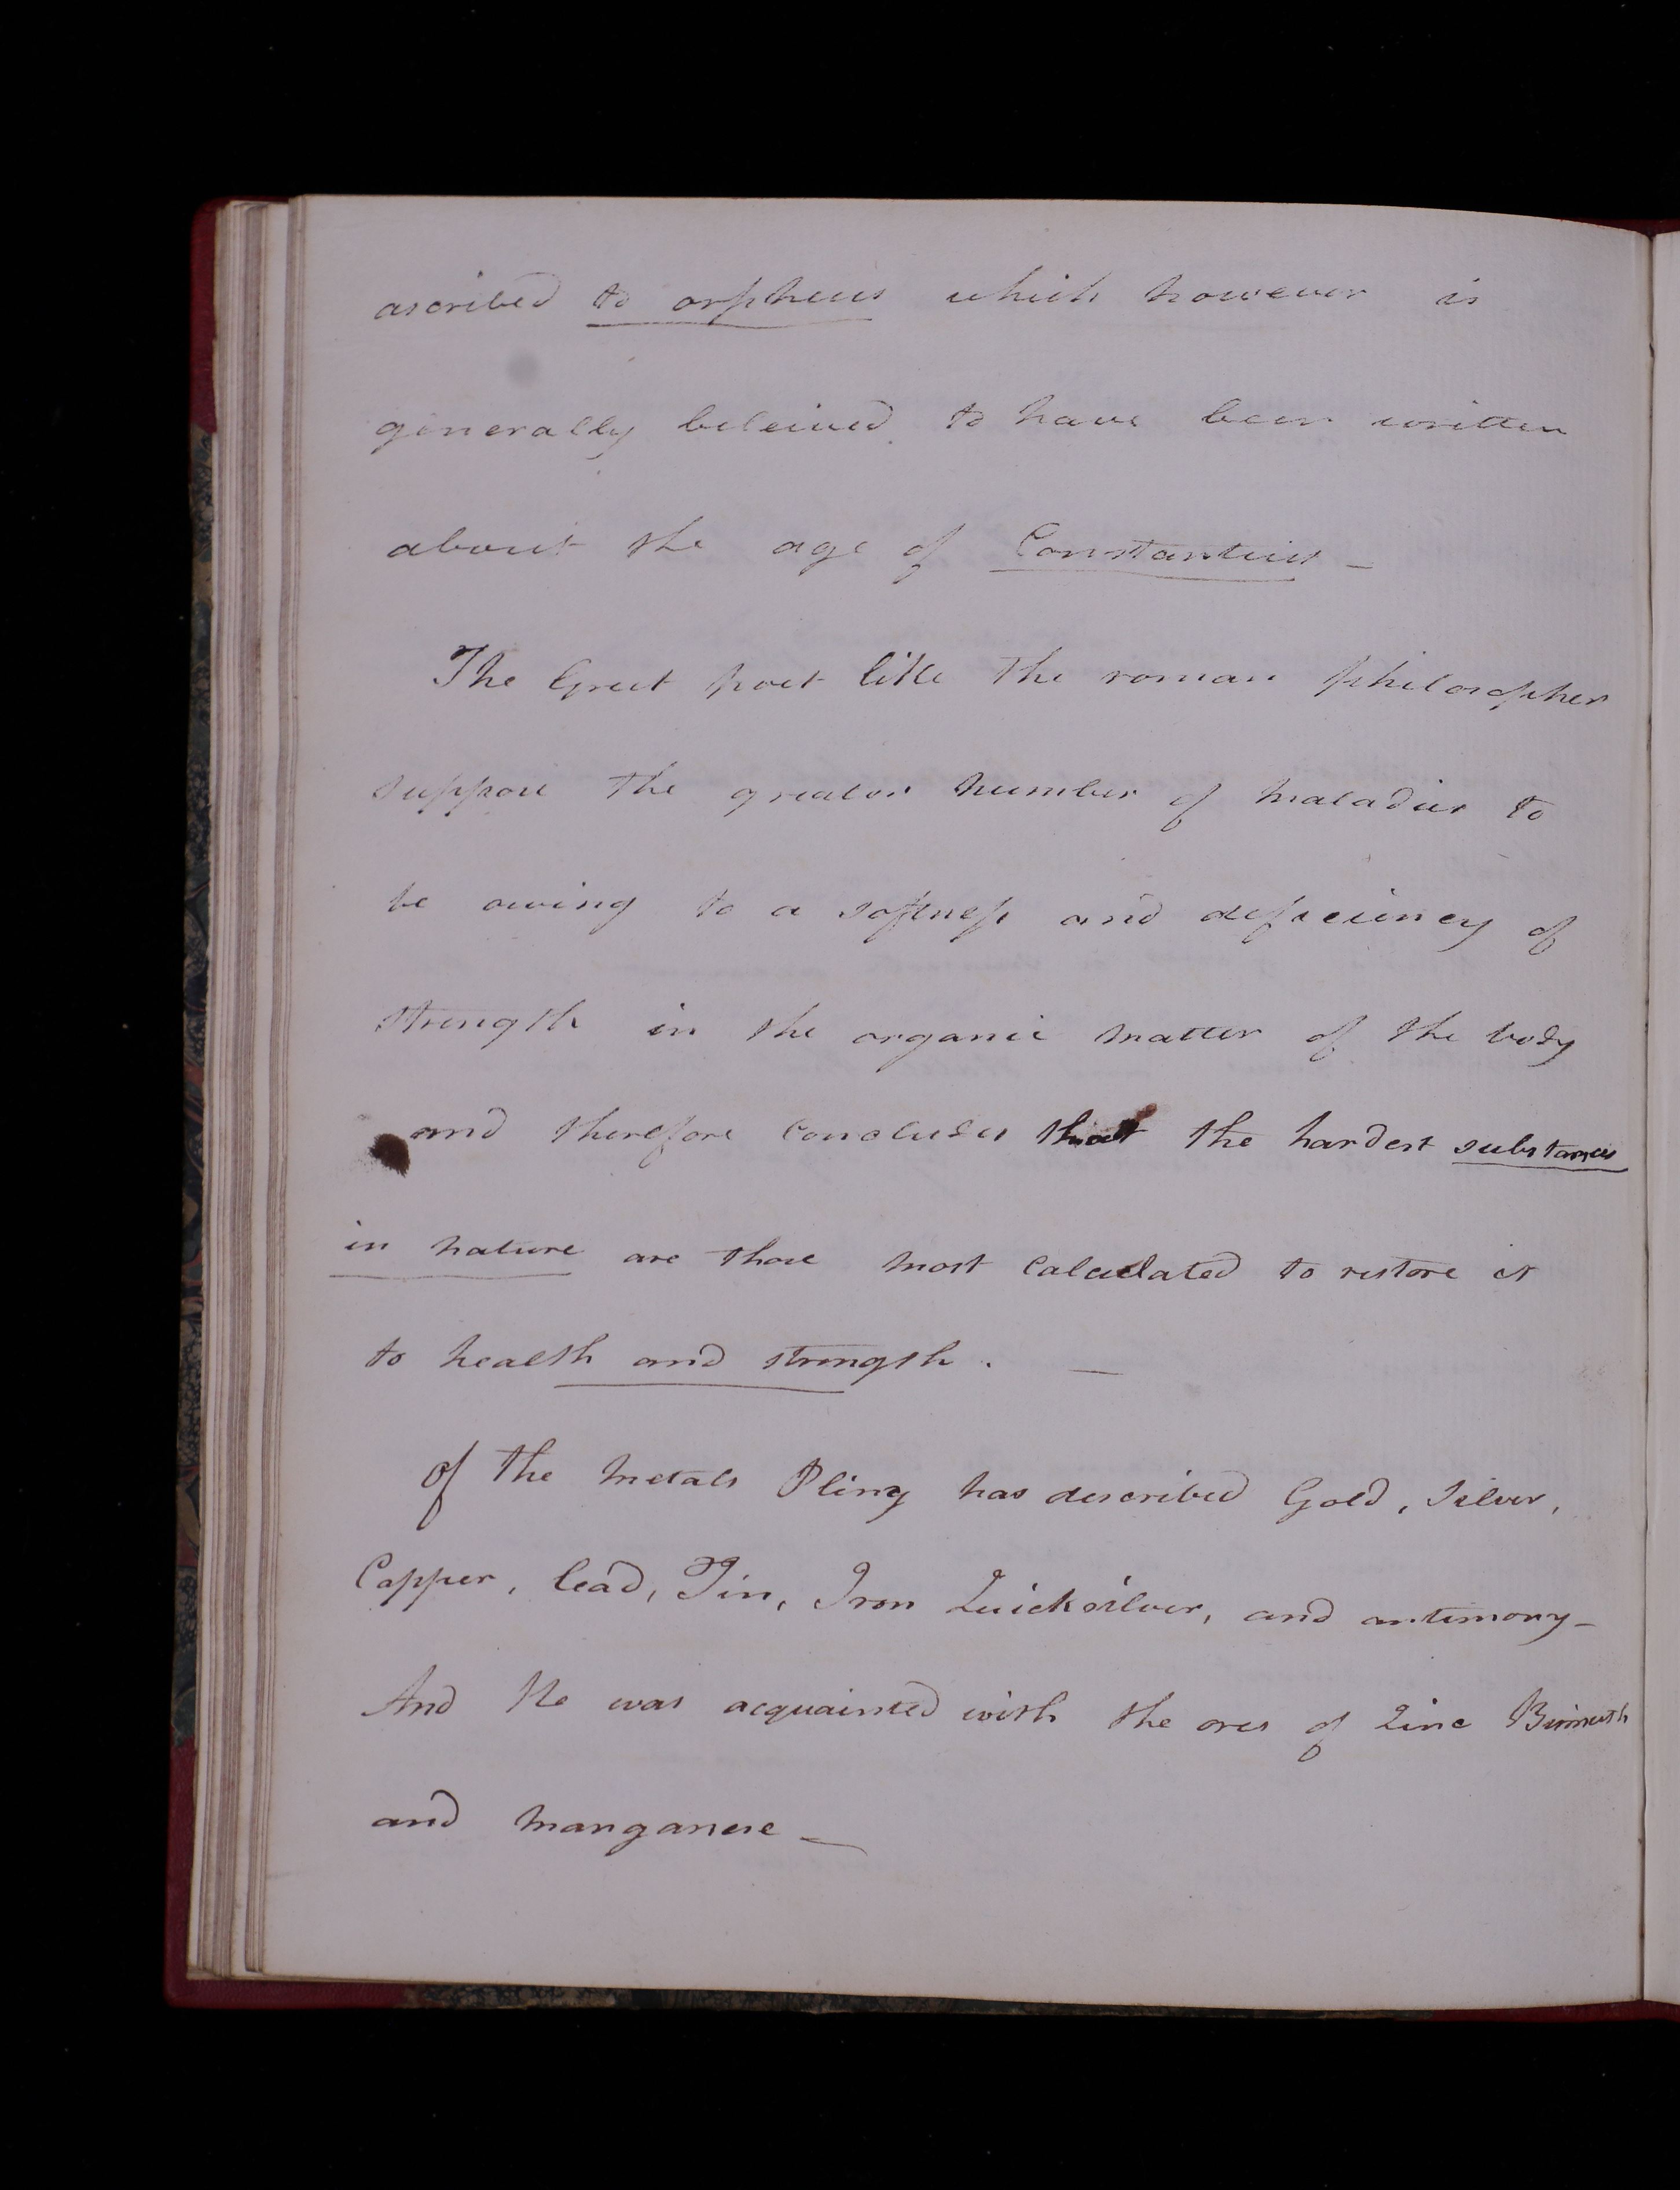 ascribed to orpheus which however is
generally beleived to have been written
about the age of Constantius –
The Greek poet like the roman philosopher
suppose the greater number of maladies to
be owing to a softness and deficiency of
strength in the organic matter of the body
and therefore concludes that the hardest substances
in nature are those most calculated to restore it
to health and strength. –
Of the metals Pliny has described Gold, Silver,
Copper, lead, Tin, Iron Quicksilver, and antimony –
And He was acquainted with the ores of Zinc Bismuth
and manganese –